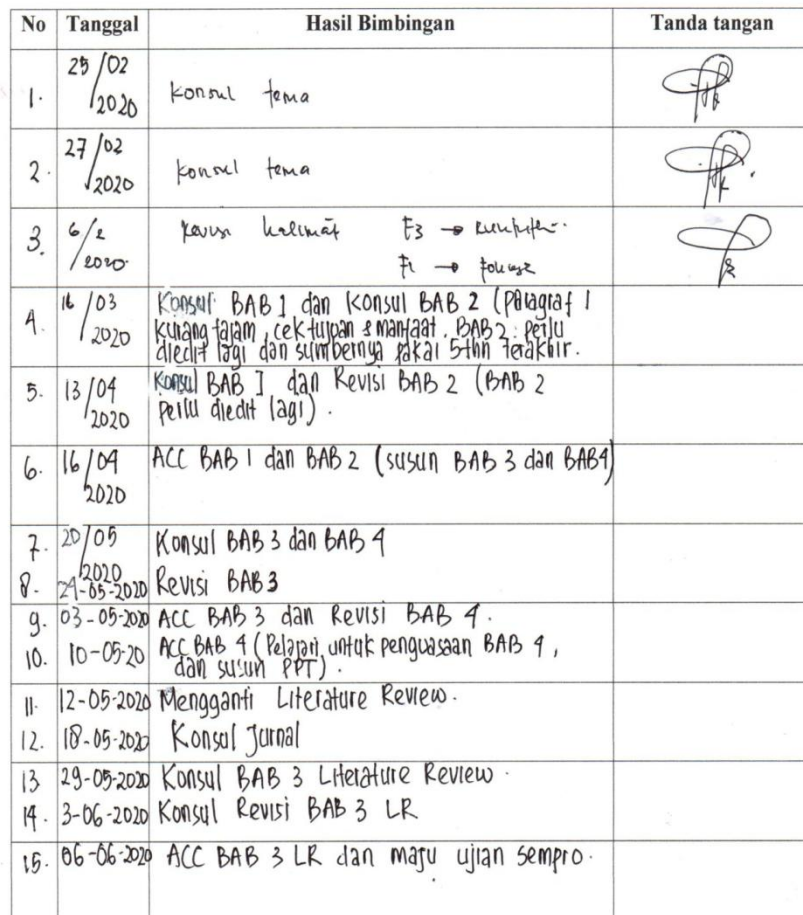 No Tanggal Hasil Bimbingan Tanda tangan
1. 25/02 2020 Konsul tema
2. 27/02 2020 Konsul tema
3. 6/2 2020 Revisi kalimat F3 →
F1 →
4. 16/03 2020 Konsul BAB 1 dan Konsul BAB 2 (paragraf 1
kurang tajam, cek tujuan & manfaat. BAB 2 perlu
diedit lagi dan sumbernya pakai 5thn terakhir.
5. 13/04 2020 Konsul BAB I dan Revisi BAB 2 (BAB 2
perlu diedit lagi).
6. 16/04 2020 ACC BAB 1 dan BAB 2 (susun BAB 3 dan BAB4)
7. 20/05 2020 Konsul BAB 3 dan BAB 4
8. 24-05-2020 Revisi BAB 3
9. 03-05-2020 ACC BAB 3 dan Revisi BAB 4.
10. 10-05-20 ACC BAB 4 (Pelajari untuk penguasaan BAB 4,
dan susun PPT).
11. 12-05-2020 Mengganti Literature Review.
12. 18-05-2020 Konsul Jurnal
13 29-05-2020 Konsul BAB 3 Literature Review.
14. 3-06-2020 Konsul Revisi BAB 3 LR
15. 06-06-2020 ACC BAB 3 LR dan maju ujian sempro.